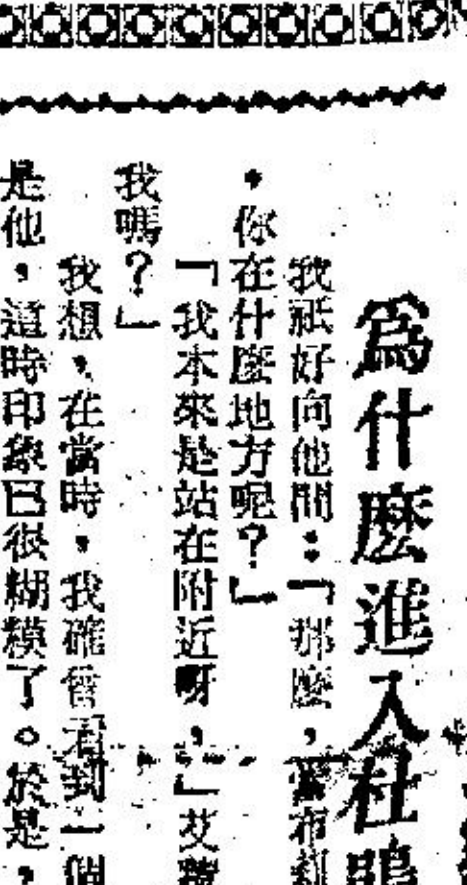 爲什麼進入杜鵑
我祇好向他問：「那麼，當布
，你在什麼地方呢？」
「我本來是站在附近呀，」艾
我嗎？」
我想，在當時，我確曾看到一個
是他，這時印象已很糊糢了。於是，